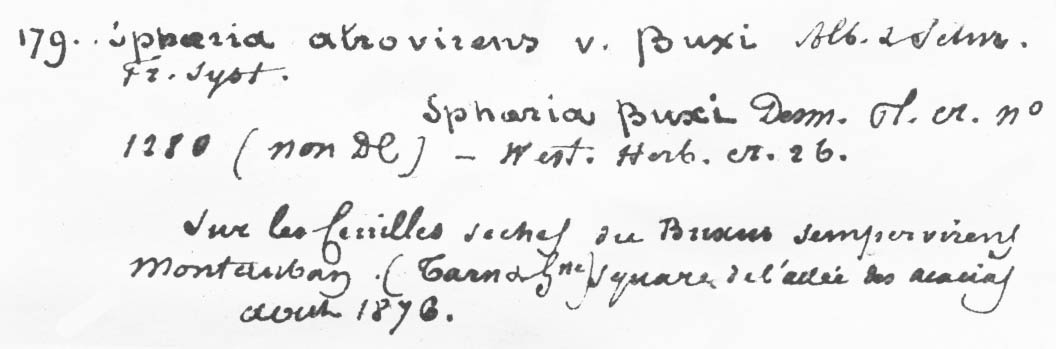 179. Sphæria atrovirens v. Buxi Alb. & Schw.
Fr. Syst.
Sphæria Buxi Desm. Pl. cr. nº
1280 (non DC) – West. Herb. cr. 26.
Sur les feuilles seches du Buxus sempervirens
Montauban (Tarn & Gne) square de l'allée des acacias
aout 1876.